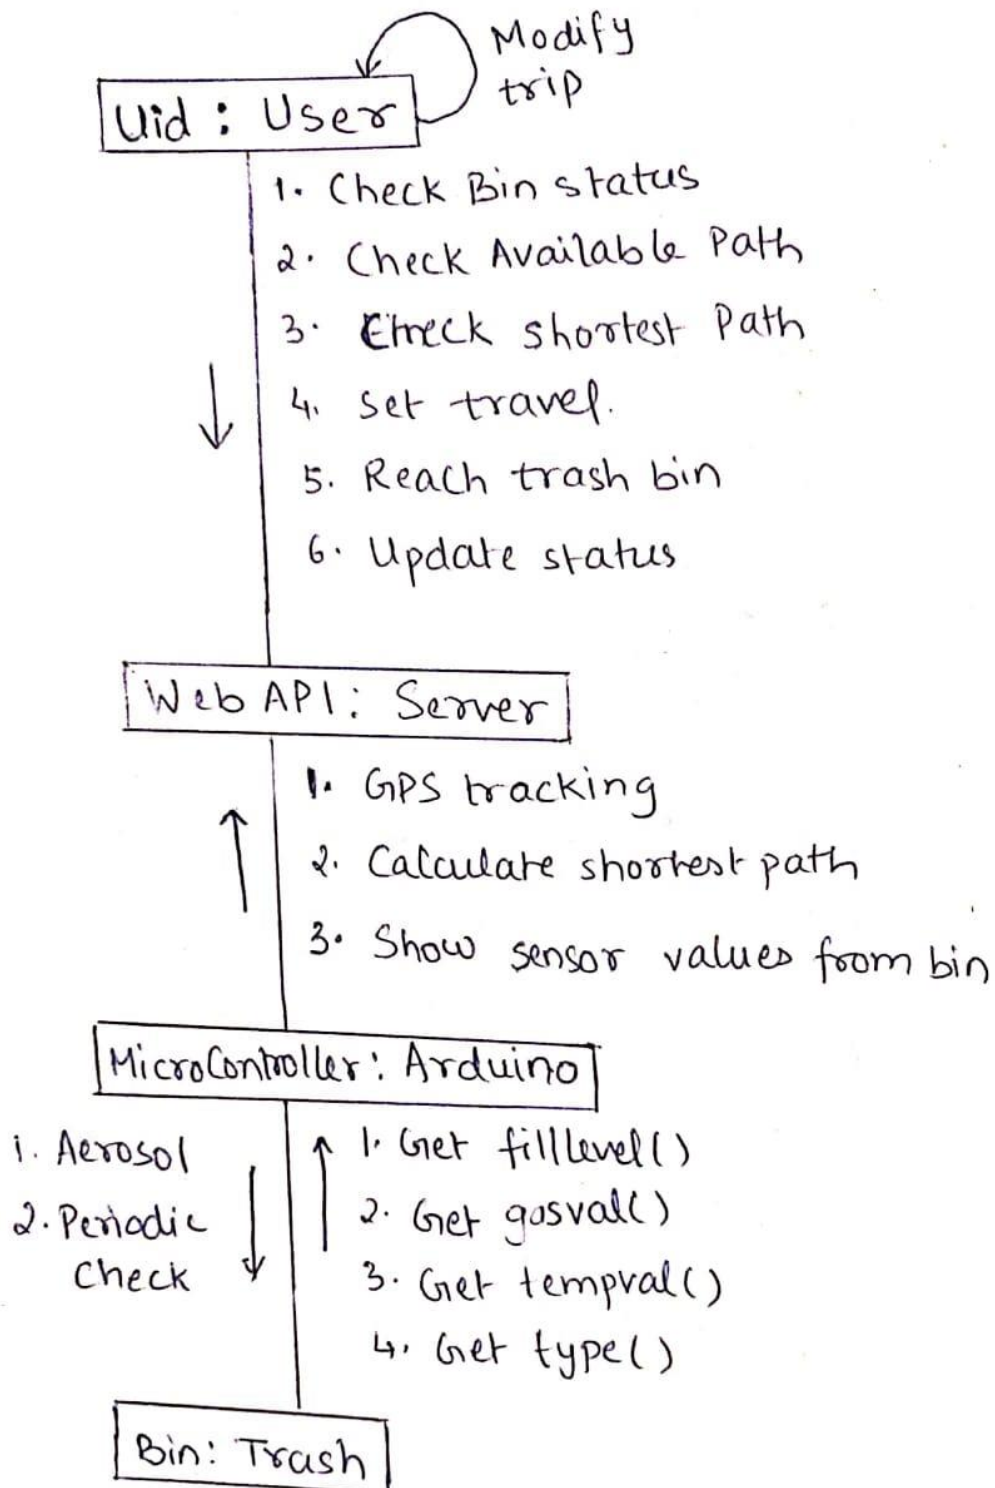 Modify
trip
Uid : User
1. Check Bin status
2. Check Available Path
3. Check shortest Path
4. Set travel.
5. Reach trash bin
6. Update status
Web API : Server
1. GPS tracking
2. Calculate shortest path
3. Show sensor values from bin
MicroController : Arduino
1. Aerosol
2. Periodic
Check
1. Get filllevel()
2. Get gasval()
3. Get tempval()
4. Get type()
Bin : Trash